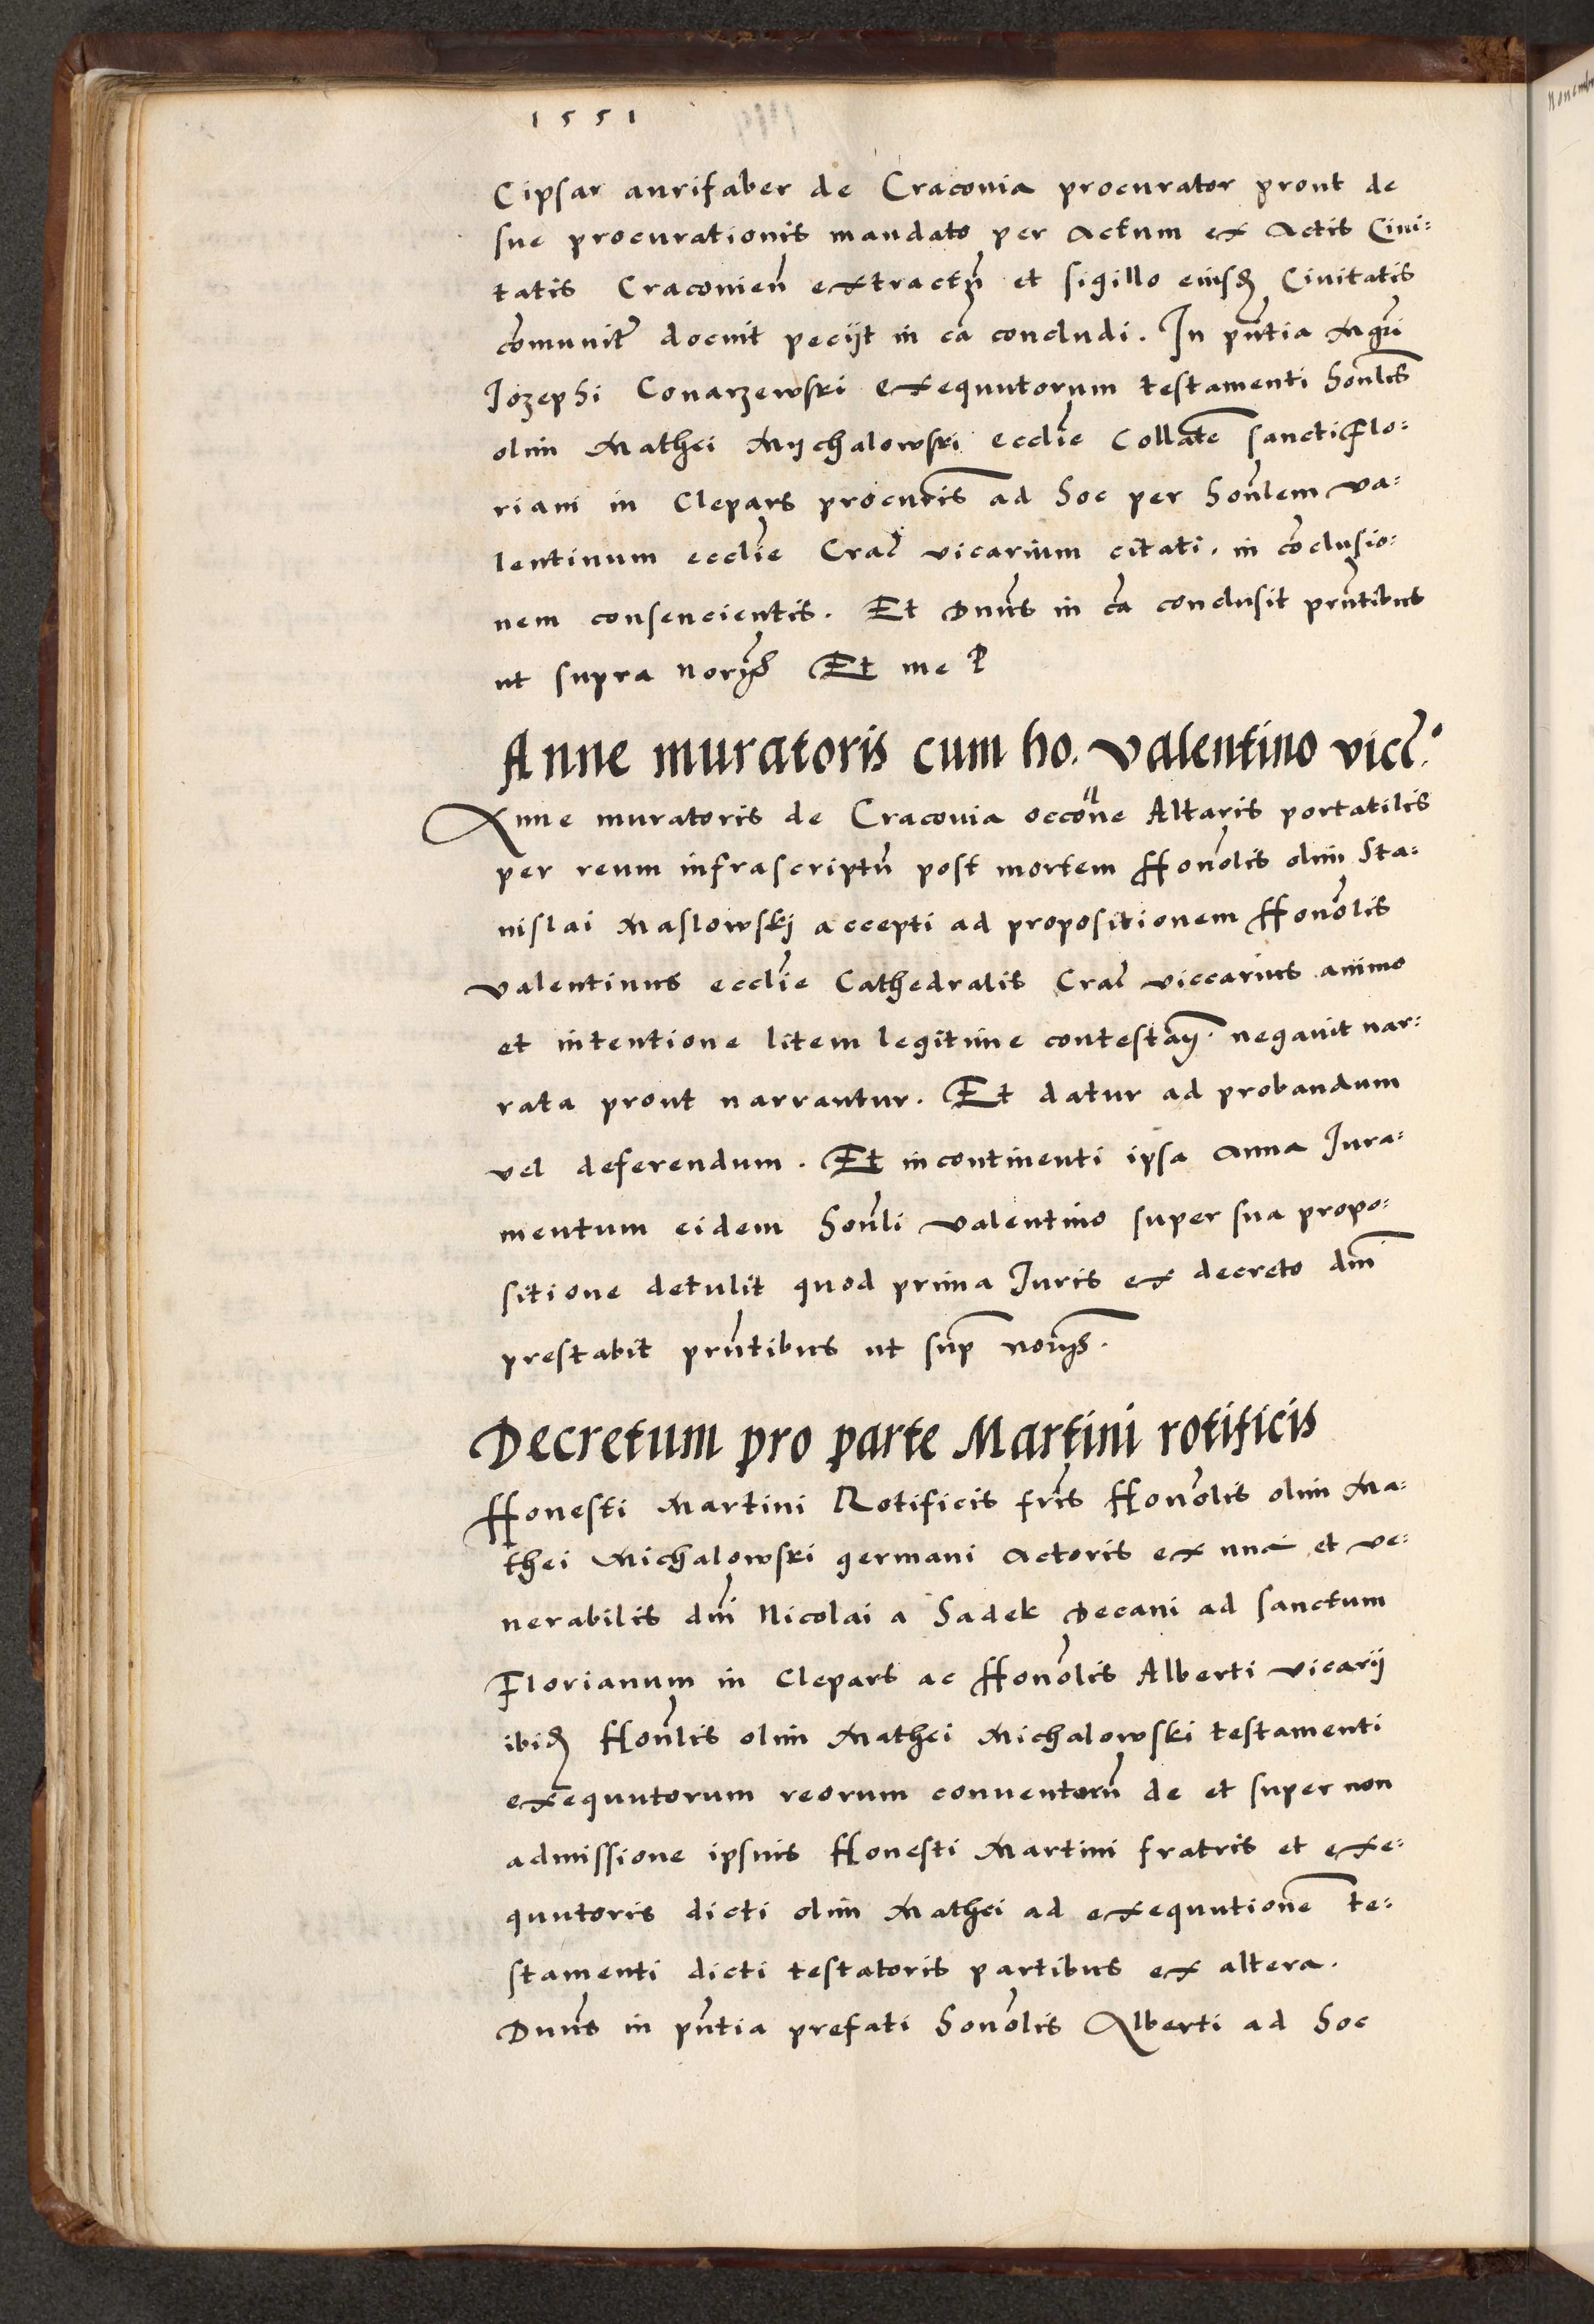 1551
Cipsar aurifaber de Cracovia procurator prout de
sue procurationis mandato per Actum ex Actis Civi:
tatis Cracovien̄ extractū et sigillo eiusd̄ Civitatis
cōmunit̄ docuit peciit in cā concludi. In p̄ntia Mgr̄i
Jozephi Conarzewski exequutorum testamenti honl̄is
olim Mathei Mychalowski eccl̄ie Collat̄e sancti Flo:
riani in Clepars procur̄is ad hoc per honl̄em va:
lentinum eccl̄ie Crac̄ vicarium citati. in cōclusio:
nem consencientis. Et Dnūs in cā conclusit pr̄ntibus
ut supra norīs Et me P
Anne muratoris cum ho. Valentino vicc̄.
Anne muratoris de Cracovia occōne Altaris portatilis
per reum infrascriptū post mortem Honōlis olim Sta:
nislai Maslowskj accepti ad propositionem Honōlis
Valentinus eccl̄ie Cathedralis Crac̄ viccarius animo
et intentione litem legitime contestan̄. negavit nar:
rata prout narrantur. Et datur ad probandum
vel deferendum. Et incontinenti ipsa Anna Jura:
mentum eidem honl̄i Valentino super sua propo:
sitione detulit quod prima Juris ex decreto dn̄i
prestabit pr̄ntibus ut sup̄ norīs.
Decretum pro parte Martini rotificis
Honesti Martini Rotificis fr̄is Honōlis olim Ma:
thei Michalowski germani Actoris ex una et ve:
nerabilis dn̄i Nicolai a Sadek Decani ad sanctum
Florianum in Clepars ac Honōlis Alberti vicarij
ibid̄ Honl̄is olim Mathei Michalowski testamenti
exequutorum reorum conventorū de et super non
admissione ipsius Honesti Martini fratris et exe:
quutoris dicti olim Mathei ad exequutionē te:
stamenti dicti testatoris partibus ex altera.
Dnūs in p̄ntia prefati honōlis Alberti ad hoc